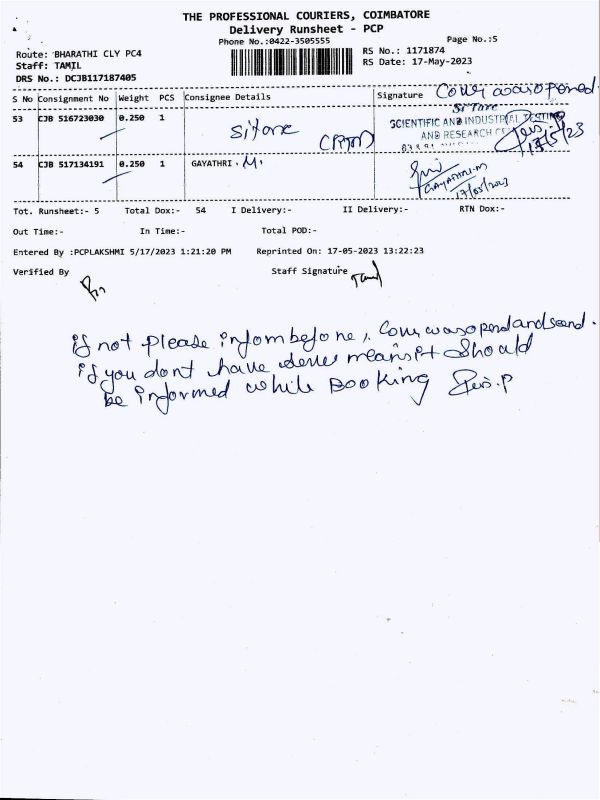 THE PROFESSIONAL COURIERS, COIMBATORE
Delivery Runsheet - PCP
Phone No.:0422-3505555
Page No.:5
Route: BHARATHI CLY PC4
RS No.: 1171874
Staff: TAMIL
RS Date: 17-May-2023
DRS No.: DCJB117187405
S No Consignment No Weight PCS Consignee Details Signature
53 CJB 516723030 0.250 1
SCIENTIFIC AND INDUSTRIAL TESTING
AND RESEARCH
17/5/23
54 CJB 517134191 0.250 1 GAYATHRI . M.
GAYATHRI.M
17/05/2023
Tot. Runsheet:- 5 Total Dox:- 54 I Delivery:- II Delivery:- RTN Dox:-
Out Time:- In Time:- Total POD:-
Entered By :PCPLAKSHMI 5/17/2023 1:21:20 PM Reprinted On: 17-05-2023 13:22:23
Verified By Staff Signature
if not please infom before, wasopend and
if you dont have means it should
be informed while Booking